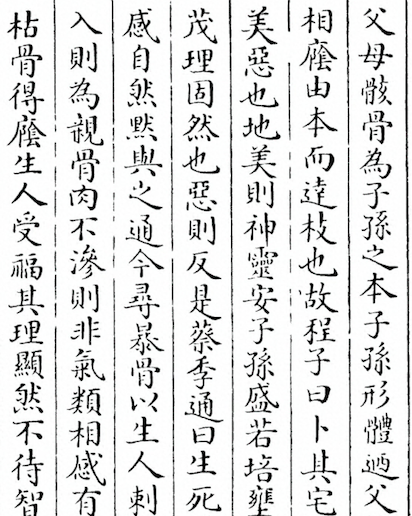 父母骸骨為子孫之本子孫形體廼父
相廕由本而達枝也故程子曰卜其宅
美惡也地美則神靈安子孫盛若培壅
茂理固然也惡則反是蔡季通曰生死
感自然黙與之通今尋暴骨以生人刺
入則為親骨肉不滲則非氣類相感有
枯骨得廕生人受福其理顯然不待智